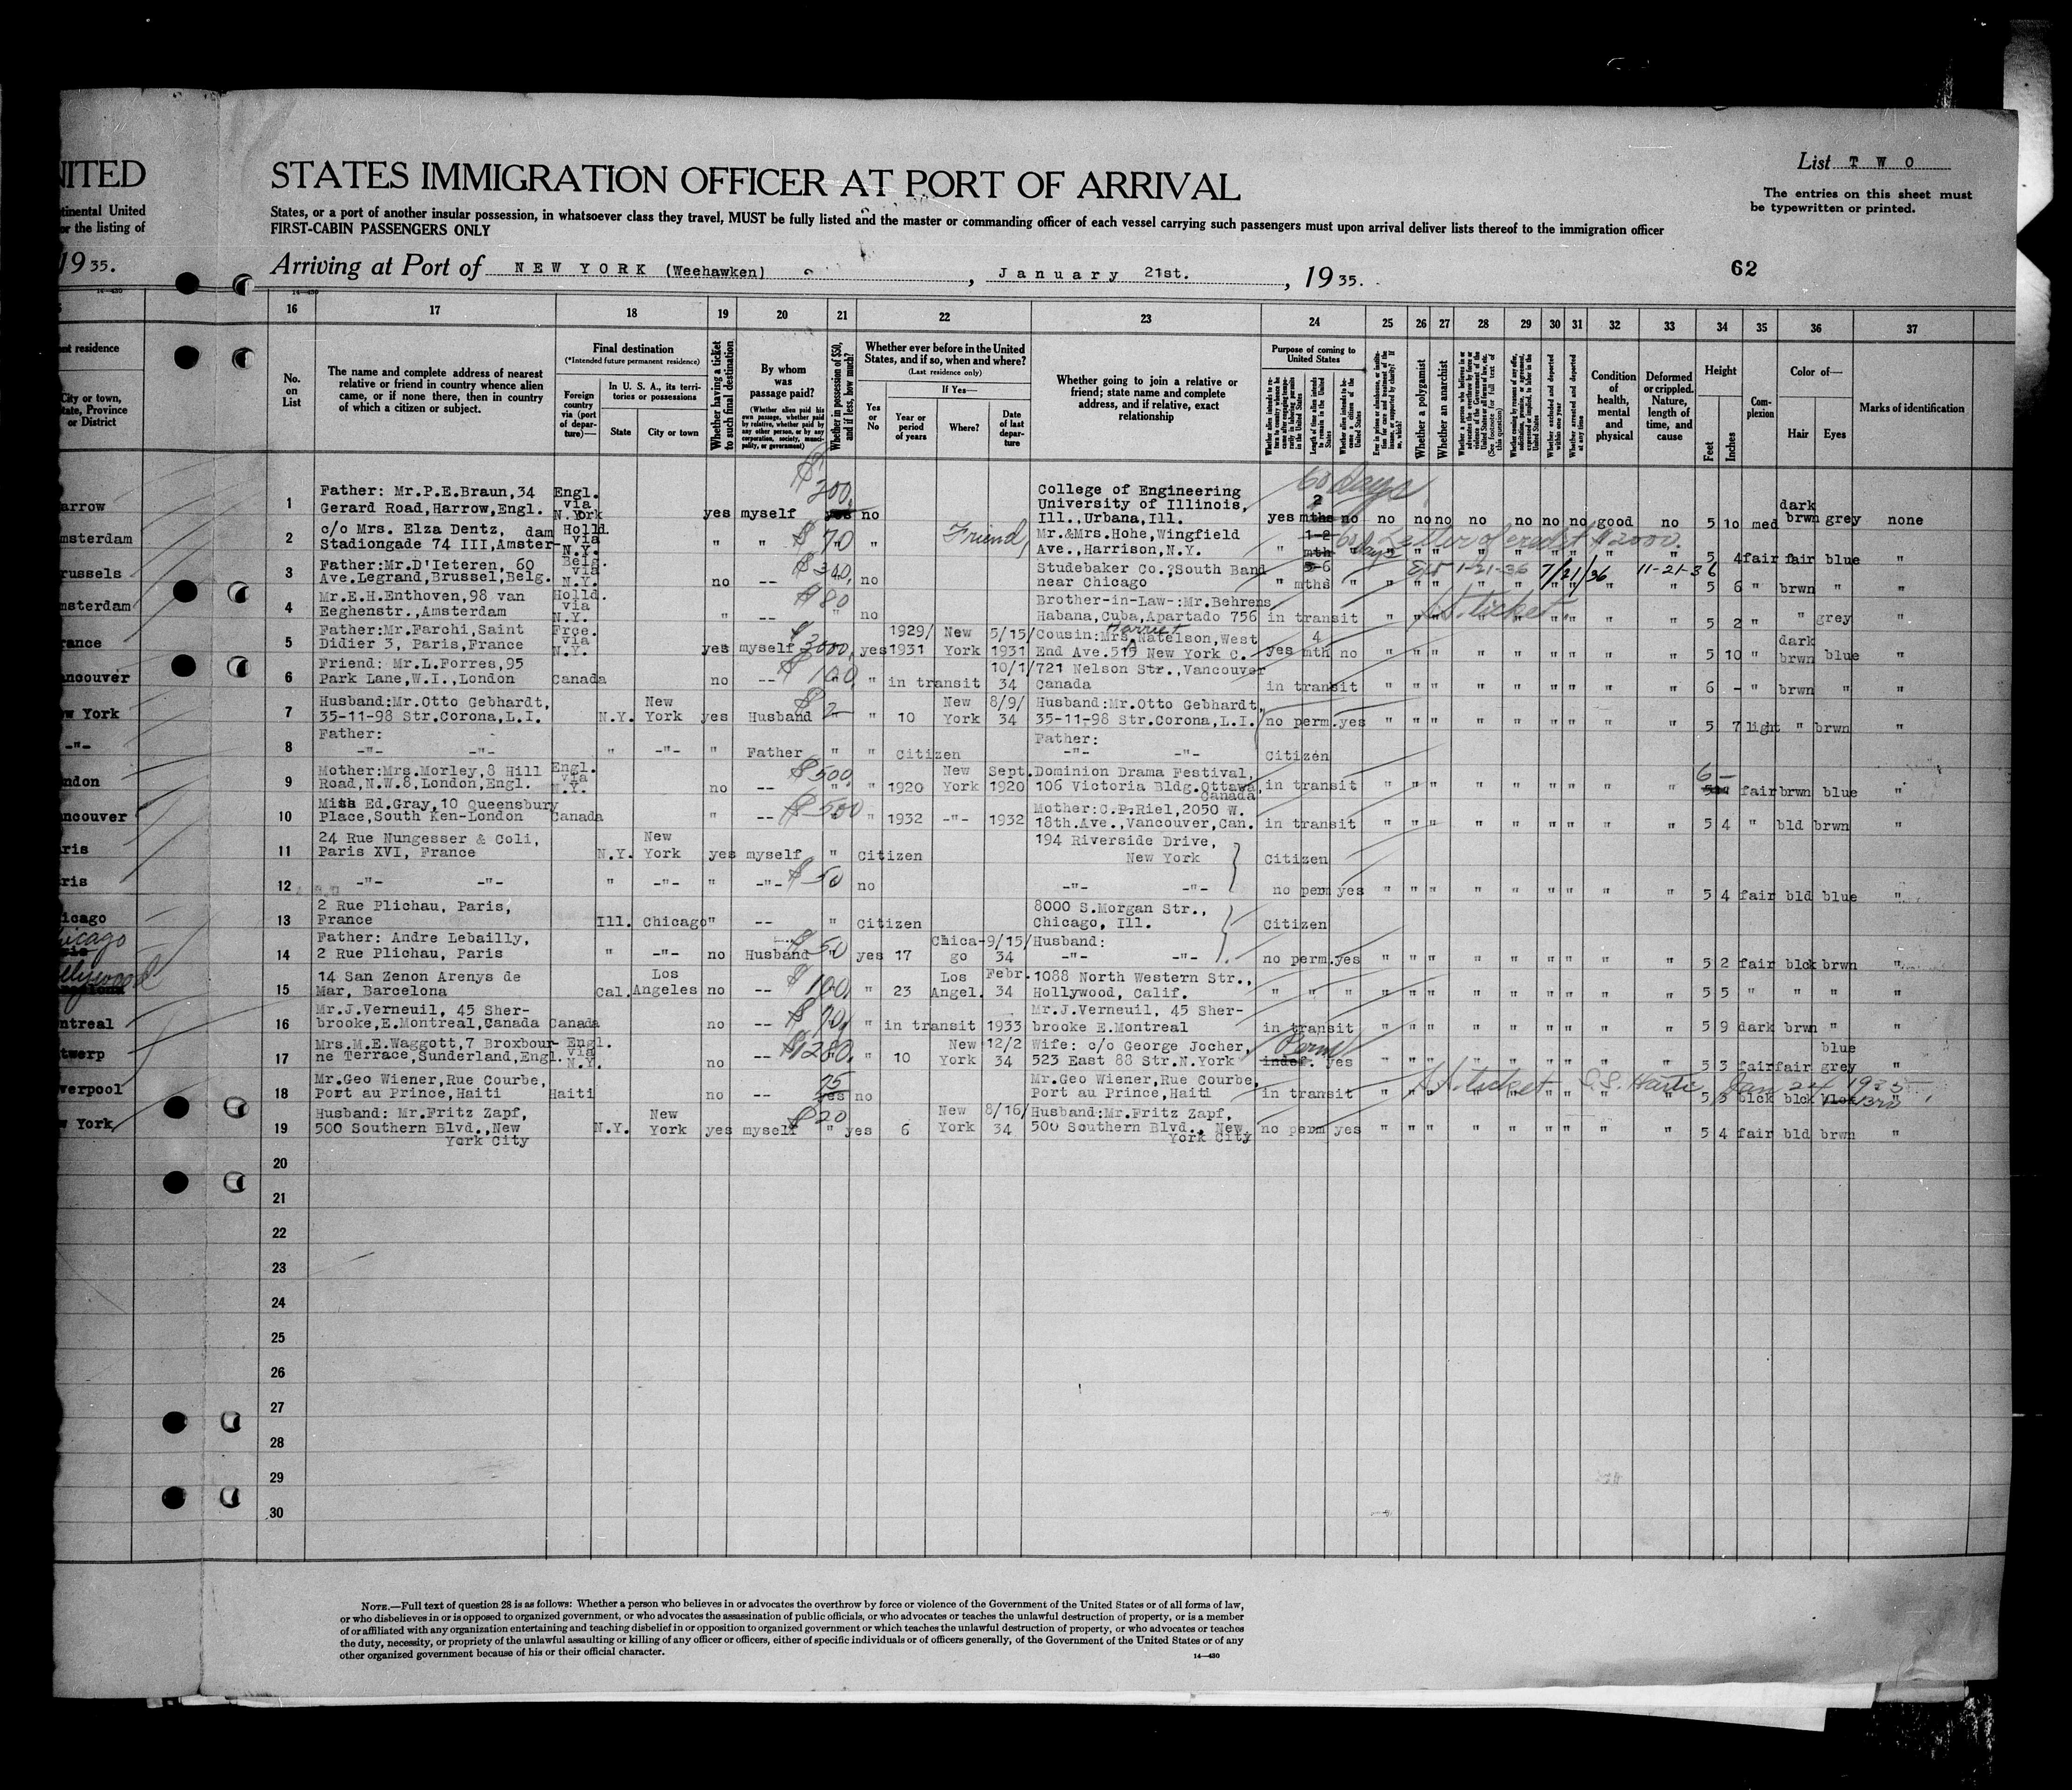 List T W O
NITED STATES IMMIGRATION OFFICER AT PORT OF ARRIVAL
The entries on this sheet must
be typewritten or printed.
tinental United States, or a port of another insular possession, in whatsoever class they travel, MUST be fully listed and the master or commanding officer of each vessel carrying such passengers must upon arrival deliver lists thereof to the immigration officer
or the listing of FIRST-CABIN PASSENGERS ONLY
1935. Arriving at Port of NEW YORK (Weehawken), January 21st., 1935.
62
16 17 18 19 20 21 22 23 24 25 26 27 28 29 30 31 32 33 34 35 36 37
No. on List
The name and complete address of nearest
relative or friend in country whence alien
came, or if none there, then in country
of which a citizen or subject.
Final destination
(*Intended future permanent residence)
Foreign country via (port of departure)—
In U. S. A., its territories or possessions
State City or town
Whether having a ticket to such final destination
By whom was passage paid?
Whether in possession of $50, and if less, how much?
Whether ever before in the United
States, and if so, when and where?
(Last residence only)
Yes or No
If Yes—
Year or period of years
Where?
Date of last departure
Whether going to join a relative or
friend; state name and complete
address, and if relative, exact
relationship
Purpose of coming to United States
Whether a polygamist
Whether an anarchist
Condition of health, mental and physical
Deformed or crippled. Nature, length of time, and cause
Height
Feet Inches
Complexion
Color of—
Hair Eyes
Marks of identification
nt residence
City or town, State, Province or District
arrow 1 Father: Mr.P.E.Braun,34 Gerard Road,Harrow,Engl. Engl. via N.York yes myself $200 yes no College of Engineering University of Illinois, Ill.,Urbana,Ill. yes 2 mths 60 days no no no no no no no no good no 5 10 med dark brwn grey none
msterdam 2 c/o Mrs. Elza Dentz, Stadiongade 74 III,Amsterdam Holld. via N.Y. " " $70 " Friend, Mr.&Mrs.Hohe,Wingfield Ave.,Harrison,N.Y. " 1-2 mth 60 days Letter of credit $2000. 5 4 fair fair blue "
russels 3 Father:Mr.D'Ieteren, 60 Ave.Legrand,Brussel,Belg. Belg. via N.Y. no -- $340 no Studebaker Co.?South Band near Chicago " 5-6 mths " 1-21-36 7/21/36 11-21-36 5 6 " brwn " "
msterdam 4 Mr.E.H.Enthoven,98 van Eeghenstr.,Amsterdam Holld. via N.Y. " -- $80 no Brother-in-Law-:Mr.Behrens, Habana,Cuba,Apartado 756 in transit S.S. ticket. 5 2 " " grey "
rance 5 Father:Mr.Farchi,Saint Didier 3, Paris,France Frce. via N.Y. yes myself $3000 yes 1929/1931 New York 5/15/1931 Cousin:Mrs.Harriet Natelson,West End Ave.515 New York C. yes 4 mth no 5 10 " dark brwn blue "
ancouver 6 Friend: Mr.L.Forres,95 Park Lane,W.I.,London Canada no -- $100 " in transit 10/1/34 721 Nelson Str.,Vancouver Canada in transit 6 - " brwn " "
w York 7 Husband:Mr.Otto Gebhardt, 35-11-98 Str.Corona,L.I. N.Y. New York yes Husband $2 " 10 New York 8/9/34 Husband:Mr.Otto Gebhardt, 35-11-98 Str.Corona,L.I. no perm. yes 5 7 light " brwn "
-"- 8 Father: -"- -"- " -"- " Father " " citizen Father: -"- -"- Citizen
ndon 9 Mother:Mrs.Morley,8 Hill Road,N.W.8,London,Engl. Engl. via N.Y. no -- $500 " 1920 New York Sept. 1920 Dominion Drama Festival, 106 Victoria Bldg.Ottawa, Canada in transit 6 - fair brwn blue "
ancouver 10 Miss Ed.Gray,10 Queensbury Place,South Ken-London Canada " -- $500 " 1932 -"- 1932 Mother:C.P.Riel,2050 W. 18th.Ave.,Vancouver,Can. in transit 5 4 " bld brwn "
ris 11 24 Rue Nungesser & Coli, Paris XVI, France N.Y. New York yes myself " citizen 194 Riverside Drive, New York Citizen
ris 12 -"- -"- " -"- " -"- $50 no -"- -"- no perm yes 5 4 fair bld blue "
icago 13 2 Rue Plichau, Paris, France Ill. Chicago " -- " citizen 8000 S.Morgan Str., Chicago, Ill. Citizen
hicago 14 Father: Andre Lebailly, 2 Rue Plichau, Paris " -"- no Husband $50 yes 17 Chicago 9/15/34 Husband: -"- -"- no perm. yes 5 2 fair blck brwn "
llywood 15 14 San Zenon Arenys de Mar, Barcelona Cal. Los Angeles no -- $100 " 23 Los Angel. Febr. 34 1088 North Western Str., Hollywood, Calif. " " " 5 5 " " " "
ntreal 16 Mr.J.Verneuil, 45 Sherbrooke,E.Montreal,Canada Canada no -- $70 " in transit 1933 Mr.J.Verneuil, 45 Sherbrooke E.Montreal in transit 5 9 dark brwn " "
twerp 17 Mrs.M.E.Waggott,7 Broxbourne Terrace,Sunderland,Engl. Engl. via N.Y. no -- $1280 " 10 New York 12/2 34 Wife: c/o George Jocher, 523 East 88 Str.N.York indef. Perm yes 5 3 fair fair blue grey "
verpool 18 Mr.Geo Wiener,Rue Courbe, Port au Prince,Haiti Haiti no -- 25 yes no Mr.Geo Wiener,Rue Courbe, Port au Prince,Haiti in transit S.S. ticket S.S. Haiti Jan 24 1935 5 3 blck blck
w York 19 Husband: Mr.Fritz Zapf, 500 Southern Blvd.,New York City N.Y. New York yes myself $20 " yes 6 New York 8/16/34 Husband:Mr.Fritz Zapf, 500 Southern Blvd., New York City no perm yes 5 4 fair bld brwn "
20
21
22
23
24
25
26
27
28
29
30
NOTE.—Full text of question 28 is as follows: Whether a person who believes in or advocates the overthrow by force or violence of the Government of the United States or of all forms of law,
or who disbelieves in or is opposed to organized government, or who advocates the assassination of public officials, or who advocates or teaches the unlawful destruction of property, or is a member
of or affiliated with any organization entertaining and teaching disbelief in or opposition to organized government or which teaches the unlawful destruction of property, or who advocates or teaches
the duty, necessity, or propriety of the unlawful assaulting or killing of any officer or officers, either of specific individuals or of officers generally, of the Government of the United States or of any
other organized government because of his or their official character.
14—430